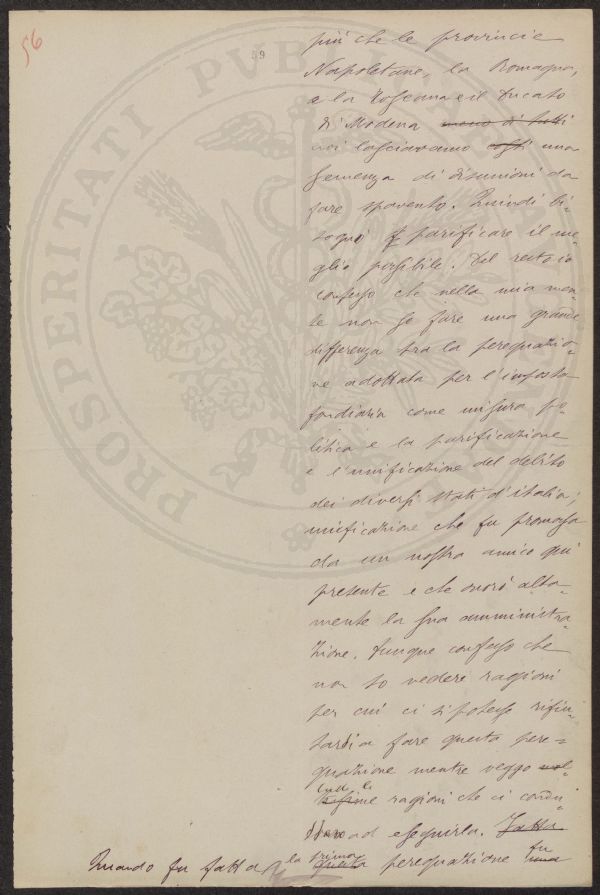 56
59
PROSPERITATI PVBL
più che le provincie
Napoletane, la Romagna,
e la Toscana e il Ducato
di Modena meno di tutti
noi lasciavamo così una
semenza di disunioni da
fare spavento. Quindi bi-
sognò parificare il me-
glio possibile. Del resto io
confesso che nella mia men-
te non so fare una grande
differenza tra la perequazio-
ne adottata per l'imposta
fondiaria come misura po-
litica e la parificazione
e l'unificazione del debito
dei diversi Stati d'italia;
unificazione che fu promossa
da un nostro amico qui
presente e che onorò alta-
mente la sua amministra-
zione. Dunque confesso che
non so vedere ragioni
per cui ci si potesse rifiu-
tarsi a fare questa pere-
quazione mentre veggo
ragioni che ci condu-
ad eseguirla. Fatta
Quando fu fatta la prima questa perequazione fu una